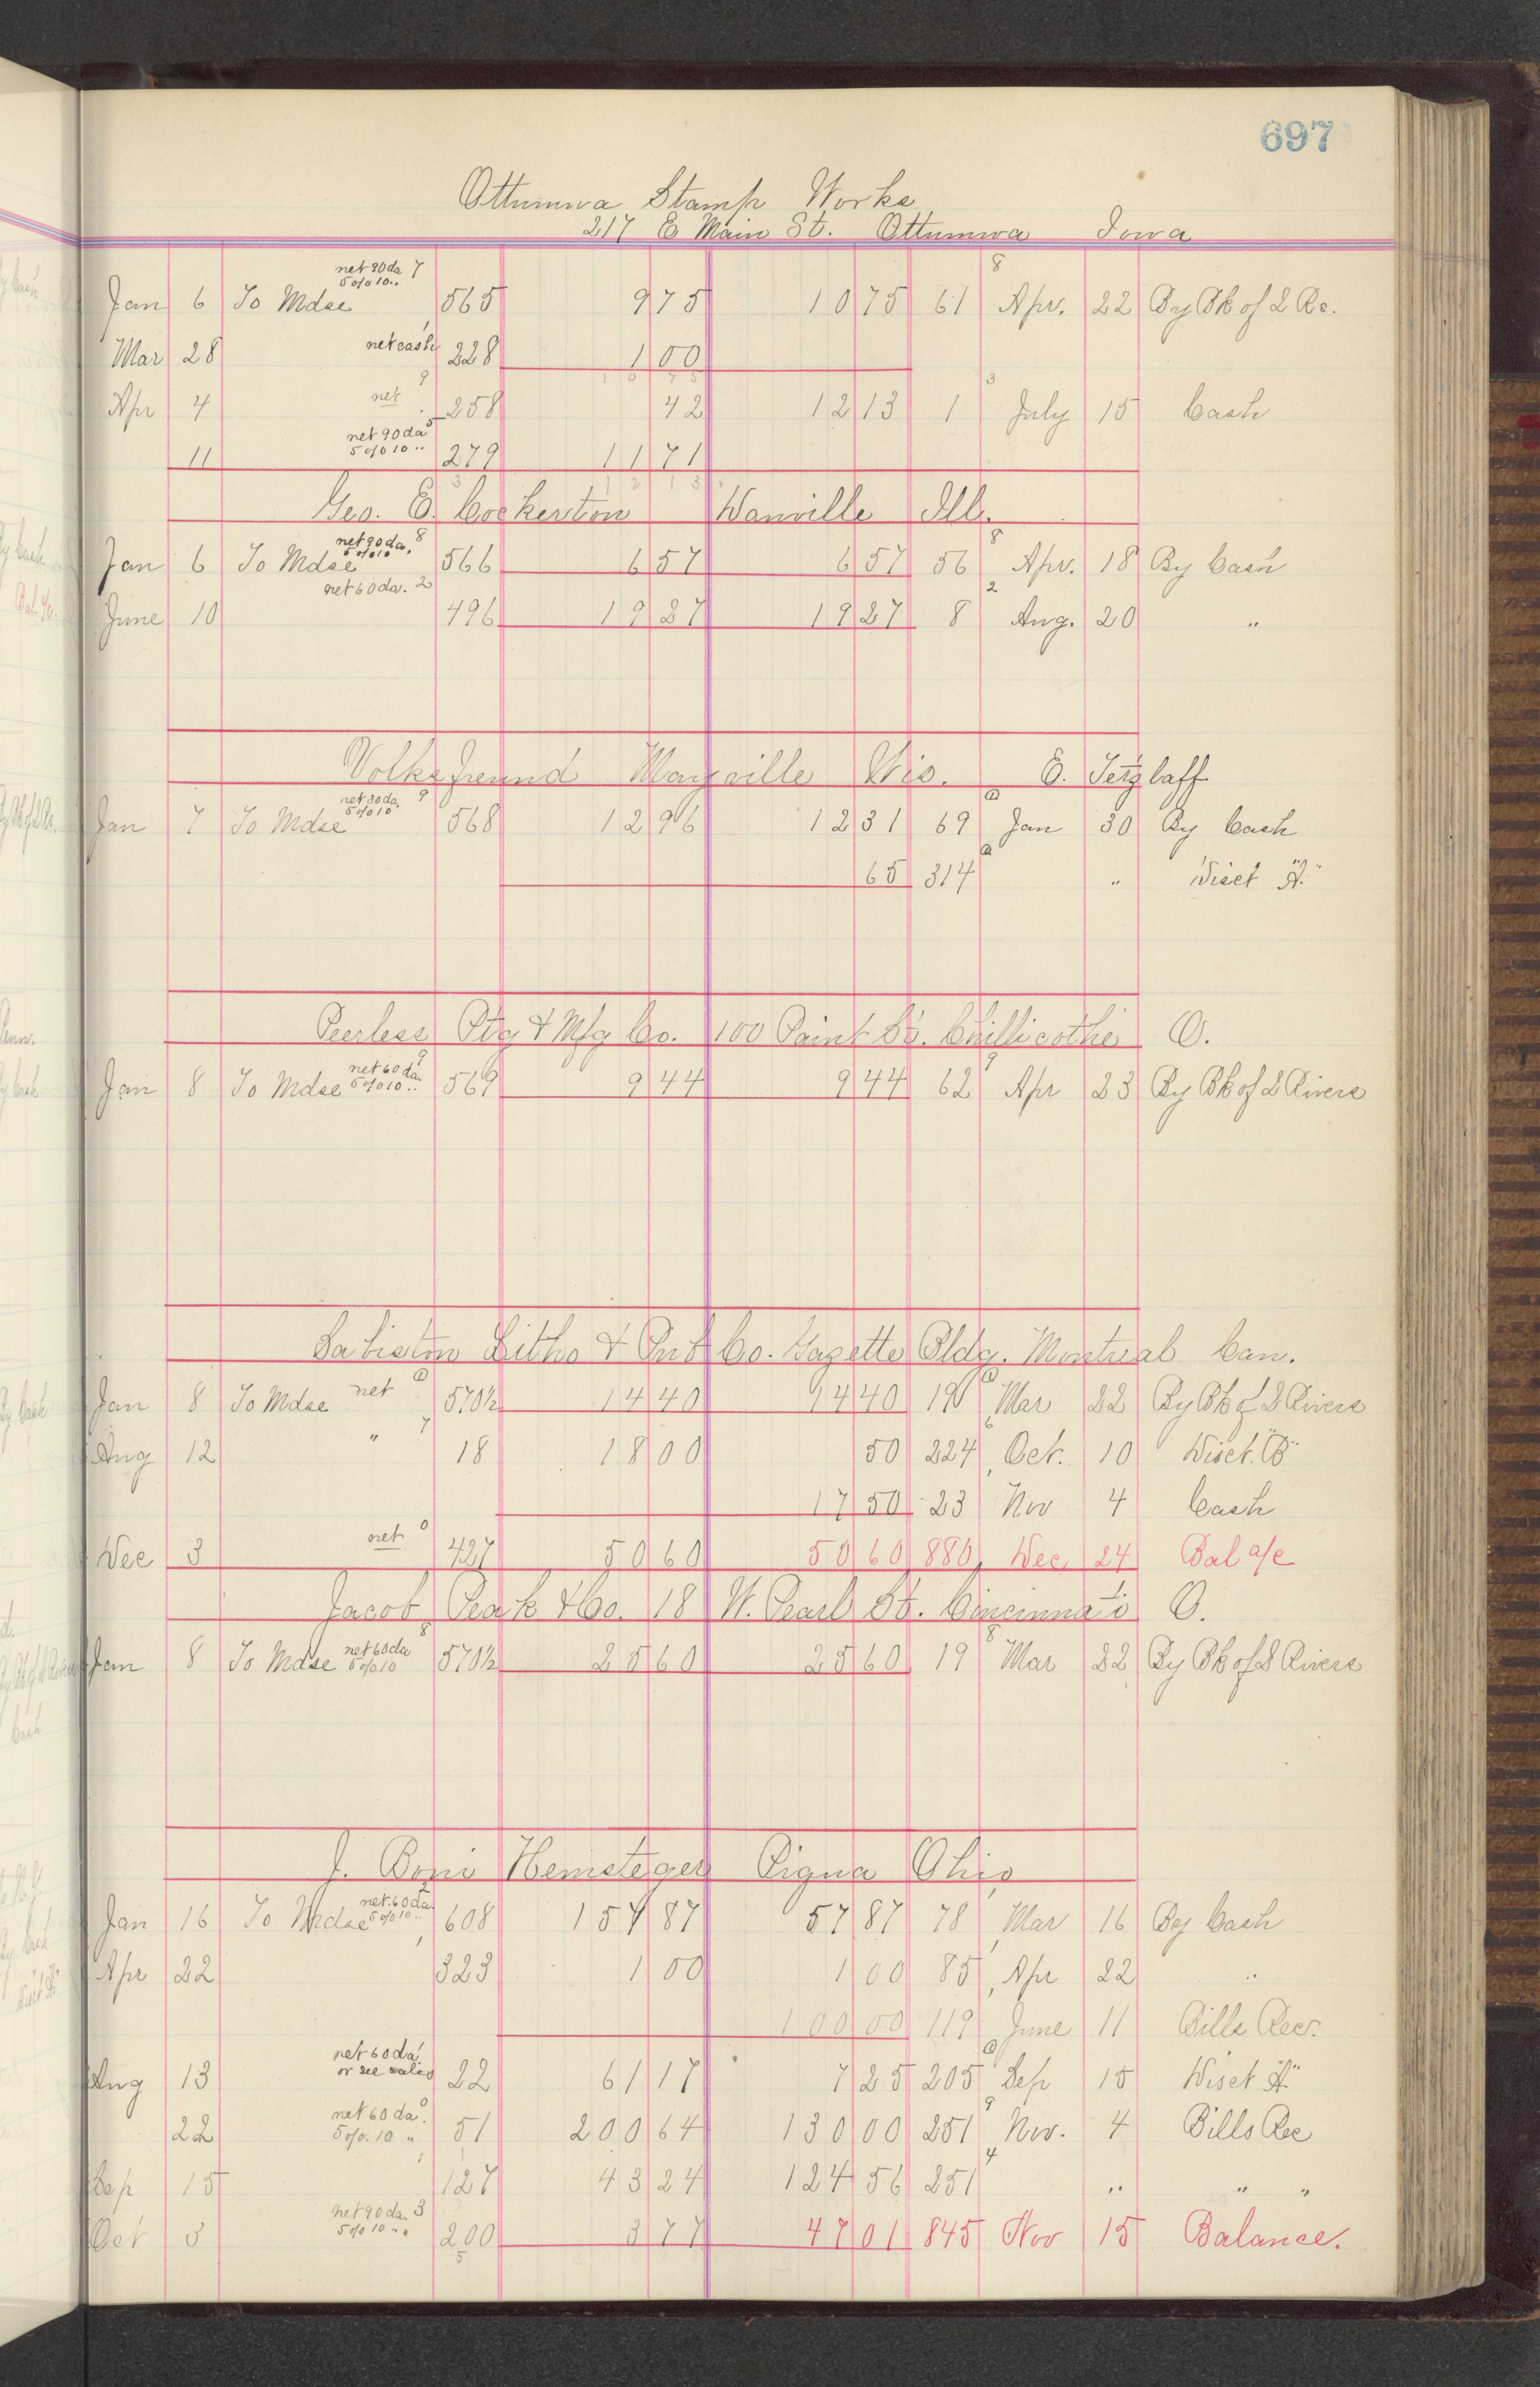 697
Ottumwa Stamp Works
217 E Main St. Ottumwa Iowa
net 90 da 7
5 o/o 10 ..
8
Jan 6 To Mdse 565 9 75 10 75 61 Apr. 22 By Bk of 2 Rs.
Mar 28 net cash 1 228 1 00
1 0 7 5
Apr 4 net 9 258 42 12 13 1 3 July 15 Cash
net 90 da 5
5 o/o 10 ..
11 279 11 71
3 1 2 1 3
Geo. E. Cockerton Danville Ill.
net 90 da. 8
5 o/o 10
8
Jan 6 To Mdse 566 6 57 6 57 56 Apr. 18 By Cash
net 60 da. 2
2
June 10 496 19 27 19 27 8 Aug. 20 "
Volksfreund Mayville Wis. E. Tetzlaff
net 30 da. 9
5 o/o 10
Jan 7 To Mdse 568 12 96 12 31 69 Jan 30 By Cash
65 314 " Disct "A"
Peerless Ptg & Mfg Co. 100 Paint St. Chillicothe O.
net 60 da. 9
5 o/o 10 ..
9
Jan 8 To Mdse 569 9 44 9 44 62 Apr 23 By Bk of 2 Rivers
Sabiston Litho & Pub Co. Gazette Bldg. Montreal Can.
Jan 8 To Mdse net 570½ 14 40 14 40 19 Mar 22 By Bk of 2 Rivers
Aug 12 " 7 18 18 00 50 224 Oct. 10 Disct. "B"
17 50 23 Nov 4 Cash
Dec 3 net 0 427 50 60 50 60 880 Dec 24 Bal a/c
Jacob Peak & Co. 18 W. Pearl St. Cincinnati O.
net 60 da 8
5 o/o 10
8
Jan 8 To Mdse 570½ 25 60 25 60 19 Mar 22 By Bk of 2 Rivers
J. Boni Hemsteger Piqua Ohio
net 60 da.
5 o/o 10 ..
Jan 16 To Mdse 608 157 87 57 87 78 Mar 16 By Cash
Apr 22 323 1 00 1 00 85 Apr 22 "
100 00 119 June 11 Bills Rec.
net 60 da
or see sales
Aug 13 22 61 17 7 25 205 Sep 15 Disct "A"
net 60 da. 0
5 o/o. 10 "
9
22 51 200 64 130 00 251 Nov. 4 Bills Rec
4
Sep 15 127 43 24 124 56 251 " " "
net 90 da. 3
5 o/o 10 ..
Oct 3 200 3 77 47 01 845 Nov 15 Balance.
5